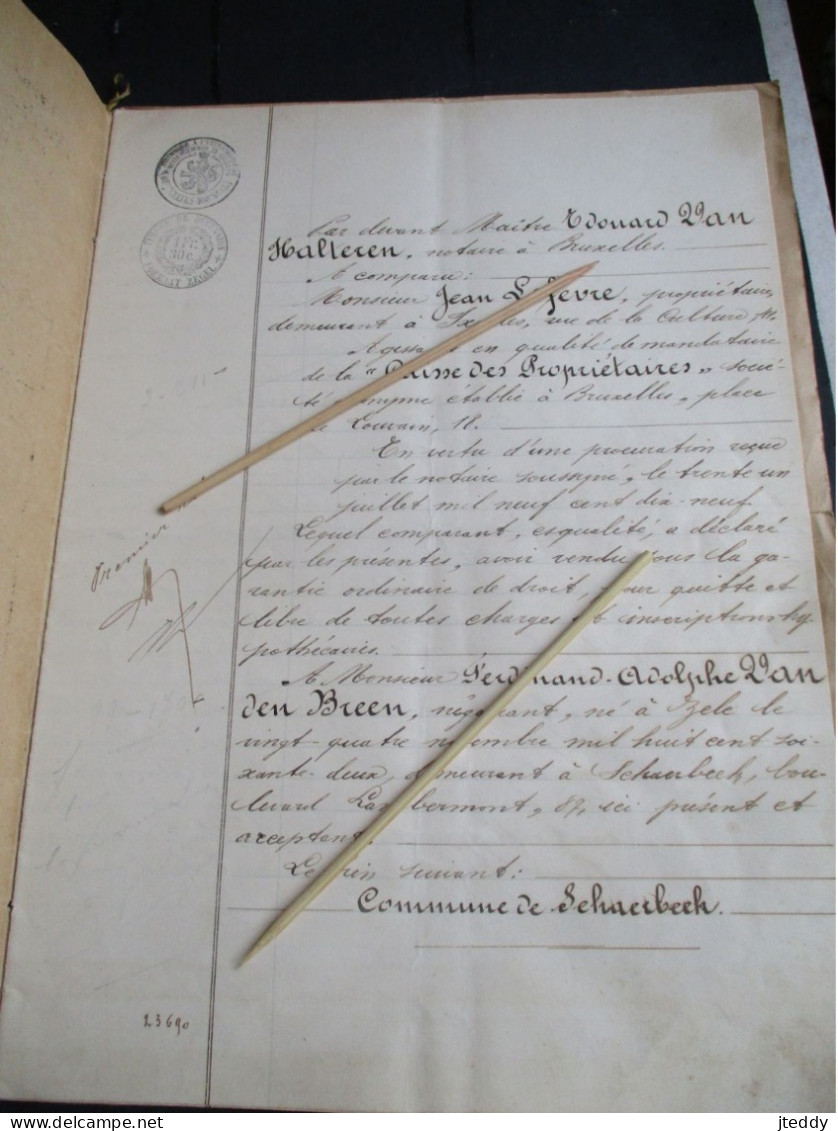 1 FR
30 C.
Par devant Maître Edouard Van
Halteren, notaire à Bruxelles.
A comparu:
Monsieur Jean Lefèvre, propriétaire,
demeurant à Ixelles, rue de la Culture
Agissant en qualité de mandataire
de la "Caisse des Propriétaires" socié-
té anonyme établie à Bruxelles, place
de Louvain, 18.
En vertu d'une procuration reçue
par le notaire soussigné, le trente un
juillet mil neuf cent dix-neuf
Lequel comparant, esqualité, a déclaré
par les présentes, avoir vendu sous la ga-
rantie ordinaire de droit, pour quitte et
libre de toutes charges et inscriptions hy-
pothécaires.
A Monsieur Ferdinand-Adolphe Van
den Breen, négociant, né à Zele le
vingt-quatre novembre mil huit cent soi-
xante-deux, demeurant à Schaerbeek, bou-
levard Lambermont, 87, ici présent et
acceptant.
Le bien suivant:
Commune de Schaerbeek.
Premier
23690
jteddy